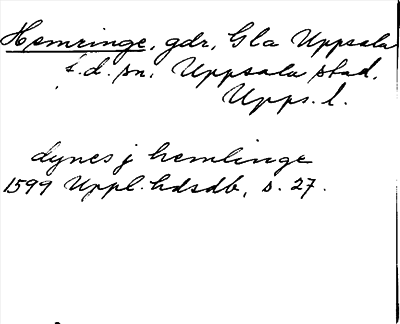 Hemringe, gdr, Gla Uppsala
f.d. sn, Uppsala stad,
Upps. l.
dynes j hemlinge
1599 Uppl. hdsdb, s. 27.